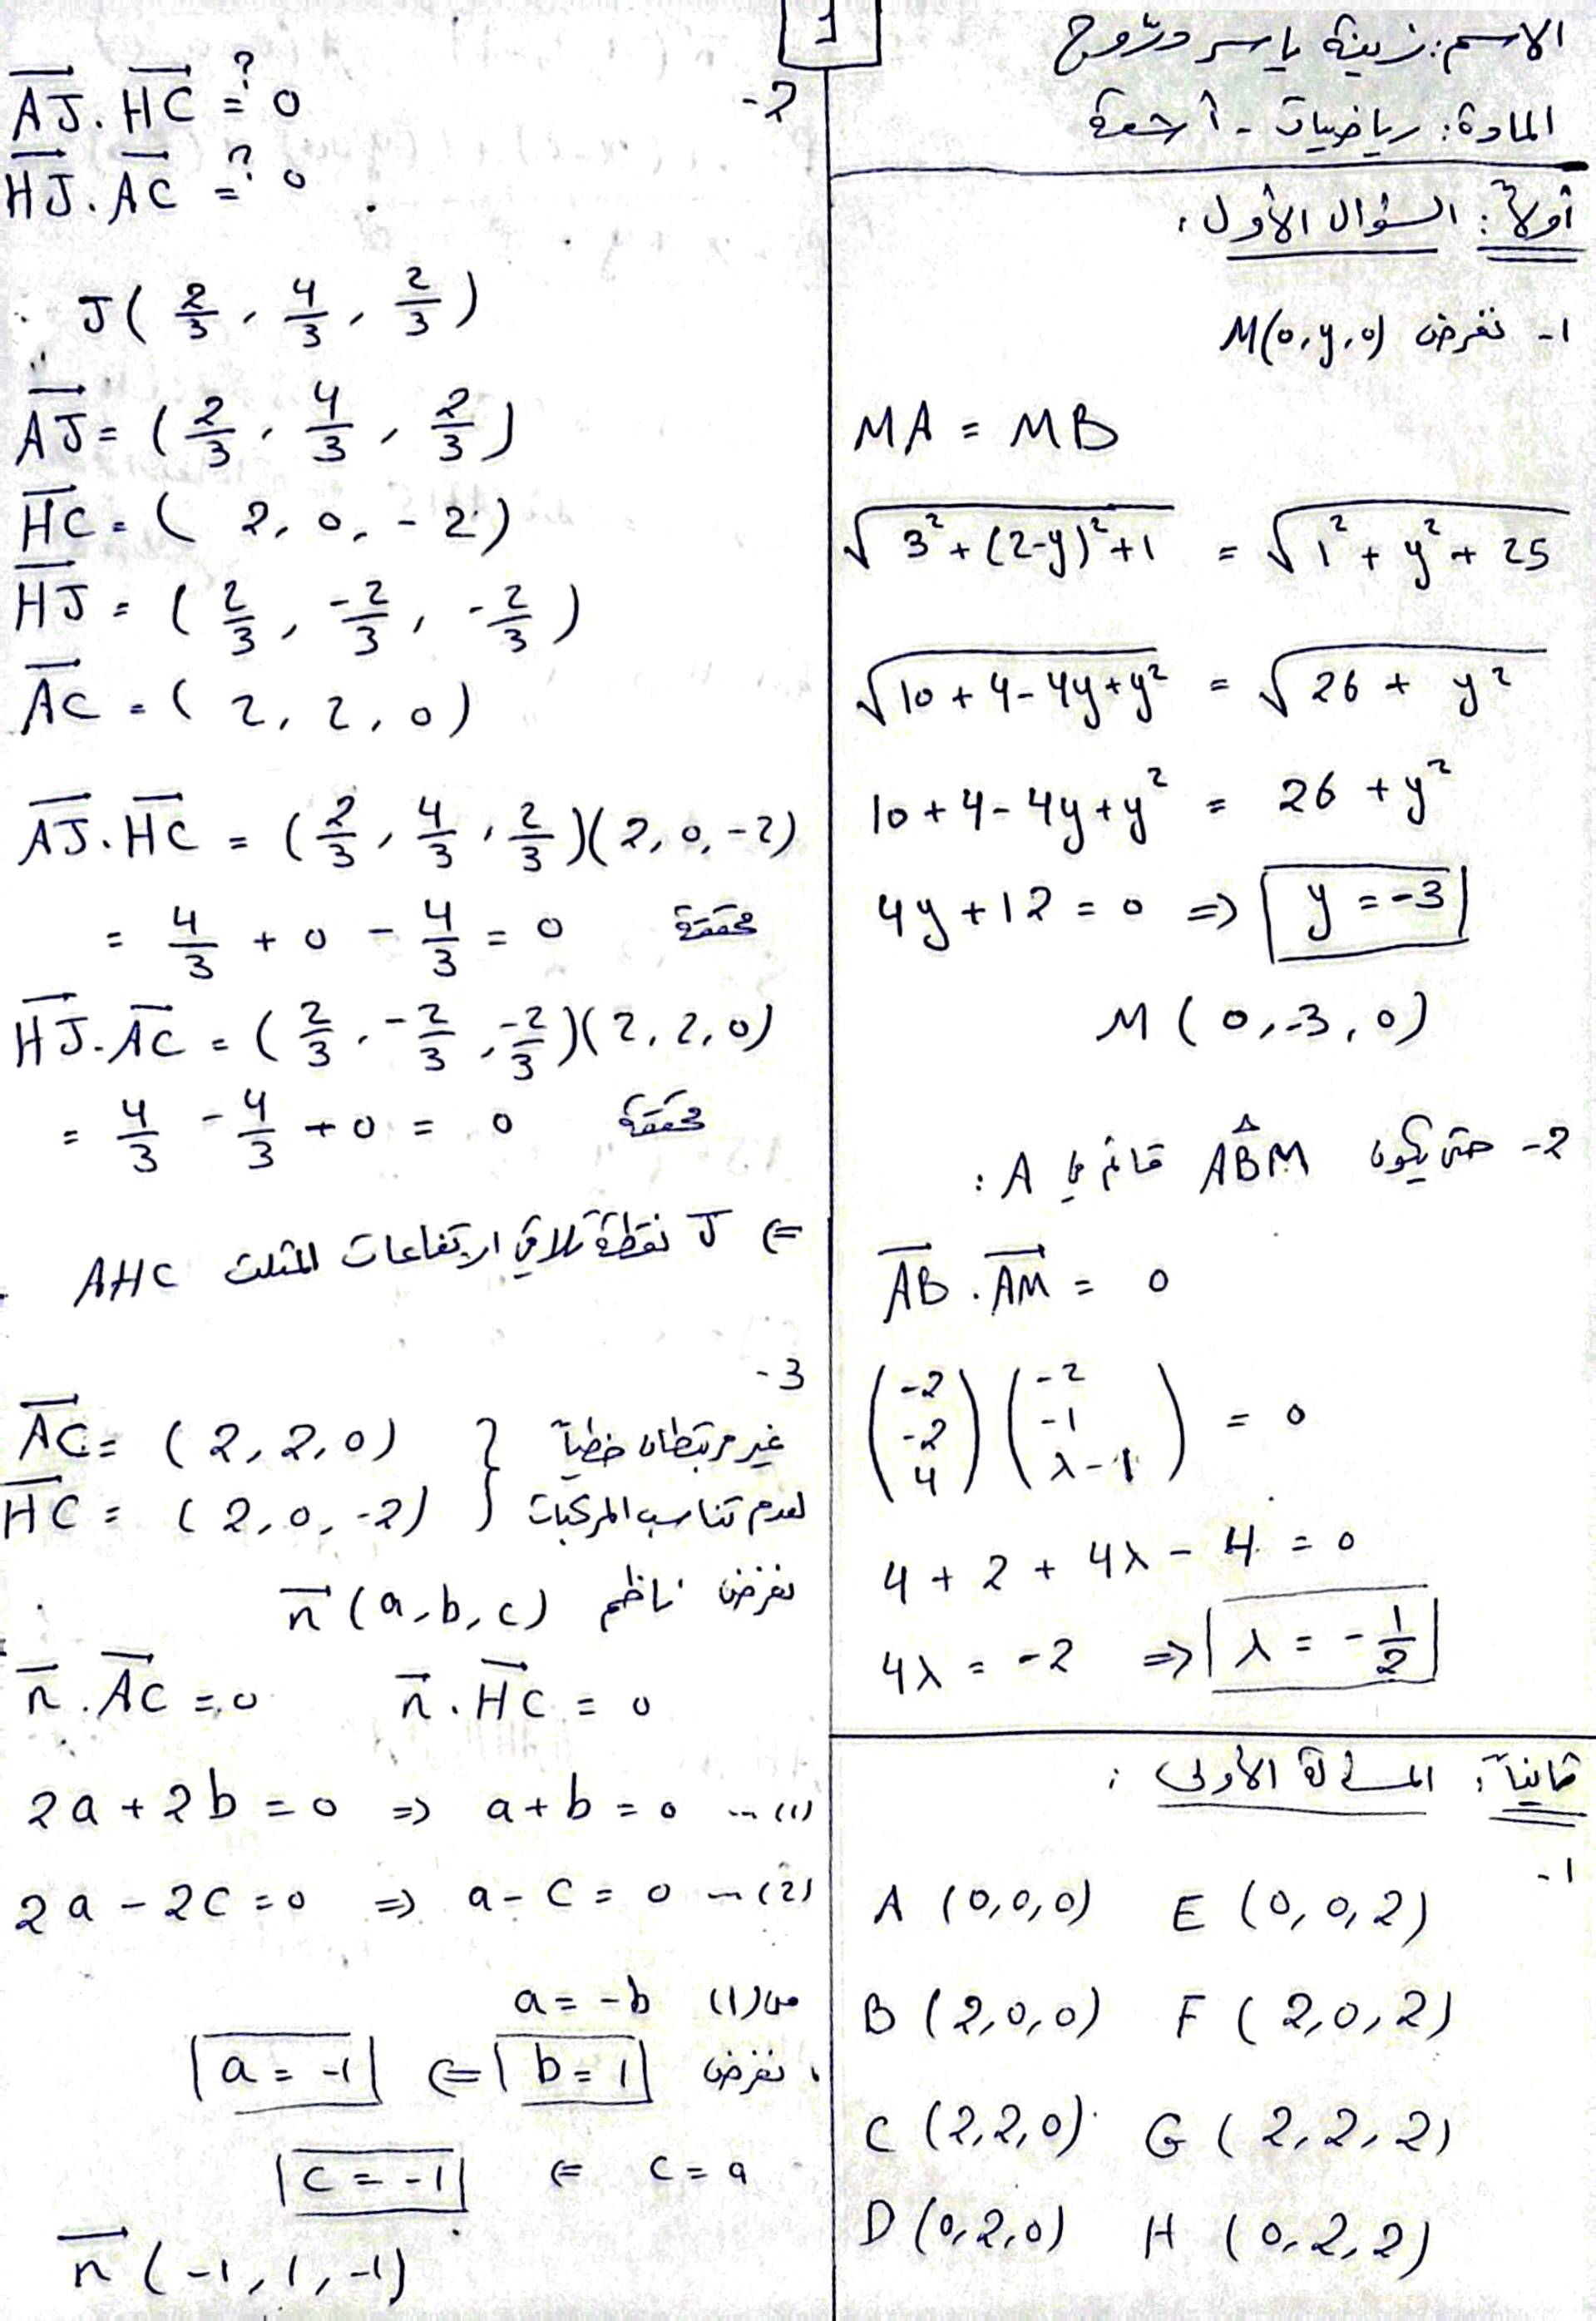 1
الاسم: زينة ياسر دتوج
المادة: رياضيات - أشعة
أولاً: السؤال الأول:
1- نفرض M(0,y,0)
MA = MB
√(3² + (2-y)² + 1) = √(1² + y² + 25)
√(10 + 4 - 4y + y²) = √(26 + y²)
10 + 4 - 4y + y² = 26 + y²
4y + 12 = 0 ⇒ y = -3
M(0,-3,0)
2- حتى يكون ABM قائم في A:
AB . AM = 0
(-2, -2, 4)(-2, -1, λ-1) = 0
4 + 2 + 4λ - 4 = 0
4λ = -2 ⇒ λ = -1/2
ثانياً: المسألة الأولى:
1-
A (0,0,0) E (0,0,2)
B (2,0,0) F (2,0,2)
C (2,2,0) G (2,2,2)
D (0,2,0) H (0,2,2)
2-
AJ . HC =? 0
HJ . AC =? 0
J(2/3, 4/3, 2/3)
AJ = (2/3, 4/3, 2/3)
HC = (2, 0, -2)
HJ = (2/3, -2/3, -2/3)
AC = (2, 2, 0)
AJ . HC = (2/3, 4/3, 2/3)(2, 0, -2)
= 4/3 + 0 - 4/3 = 0 محققة
HJ . AC = (2/3, -2/3, -2/3)(2, 2, 0)
= 4/3 - 4/3 + 0 = 0 محققة
⇐ J نقطة تلاقي ارتفاعات المثلث AHC
3-
AC = (2, 2, 0) } غير مرتبطان خطياً
HC = (2, 0, -2) } لعدم تناسب المركبات
نفرض ناظم n(a,b,c)
n . AC = 0 n . HC = 0
2a + 2b = 0 ⇒ a + b = 0 ...(1)
2a - 2c = 0 ⇒ a - c = 0 ...(2)
من (1) a = -b
نفرض b = 1 ⇐ a = -1
c = a ⇐ c = -1
n(-1, 1, -1)